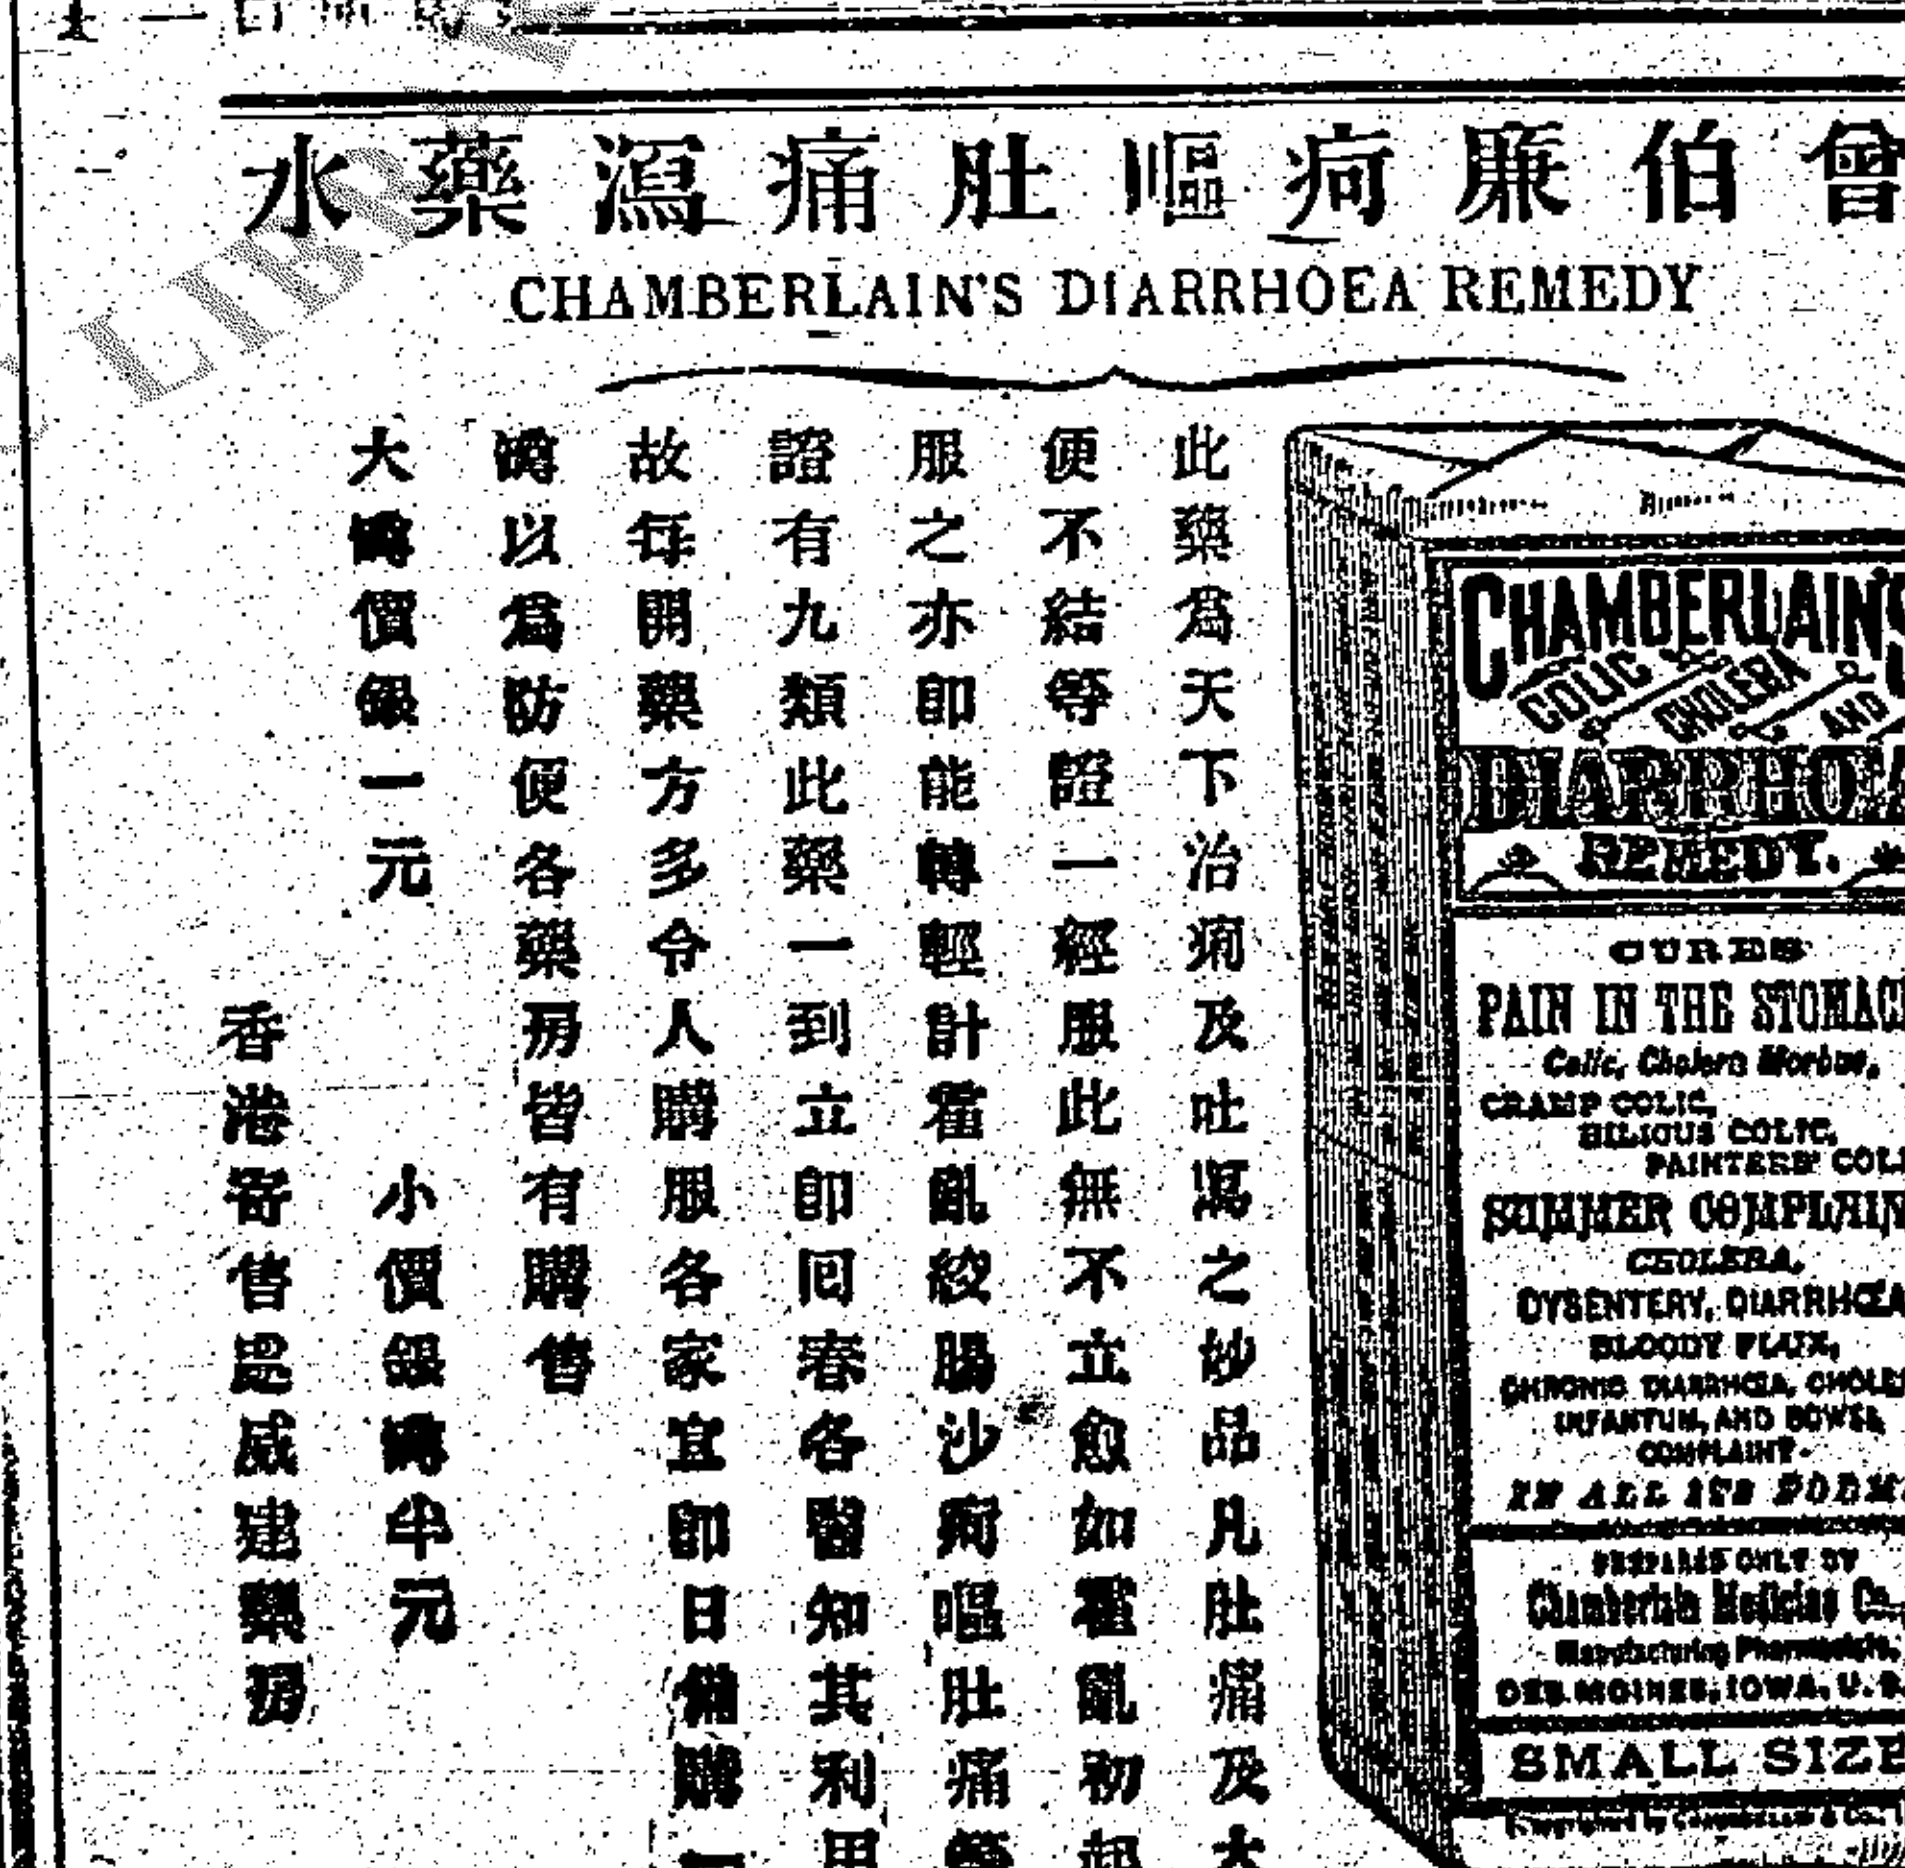 曾伯廉疴嘔肚痛瀉藥水
CHAMBERLAIN'S DIARRHOEA REMEDY
此藥爲天下治痾及吐瀉之妙品凡肚痛及大
便不結等證一經服此無不立愈如霍亂初起
服之亦卽能轉輕計霍亂絞腸沙痾嘔肚痛等
證有九類此藥一到立卽囘春各醫知其利用
故每開藥方多令人購服各家宜卽日備購
罇以爲防便各藥房皆有購售
大罇價銀一元 小價銀罇半元
香港寄售 威建藥房
CHAMBERLAIN'S
COLIC CHOLERA AND
DIARRHOEA
REMEDY.
CURES
PAIN IN THE STOMACH
Colic, Cholera Morbus,
CRAMP COLIC,
BILIOUS COLIC,
PAINTERS' COLI
SUMMER COMPLAIN
CHOLERA,
DYSENTERY, DIARRHŒA
BLOODY FLUX,
CHRONIC DIARRHŒA, CHOLE
INFANTUM, AND BOWEL
COMPLAINT
IN ALL ITS FORM
PREPARED ONLY BY
Chamberlain Medicine Co.,
Manufacturing Pharmacists,
DES MOINES, IOWA, U. S.
SMALL SIZE
LIBR